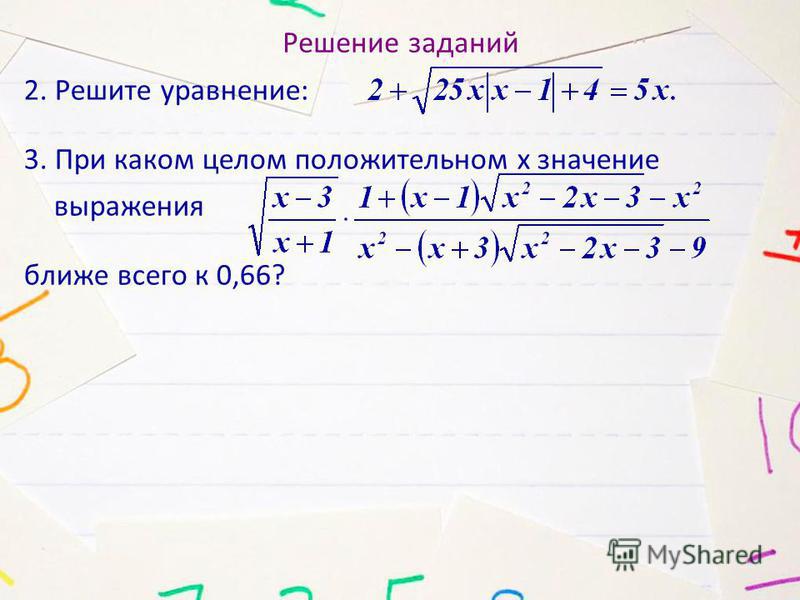 Решение заданий
2. Решите уравнение: 2 + √(25x|x − 1| + 4) = 5x.
3. При каком целом положительном х значение
выражения √((x − 3)/(x + 1)) · (1 + (x − 1)√(x² − 2x − 3) − x²)/(x² − (x + 3)√(x² − 2x − 3) − 9)
ближе всего к 0,66?
MyShared